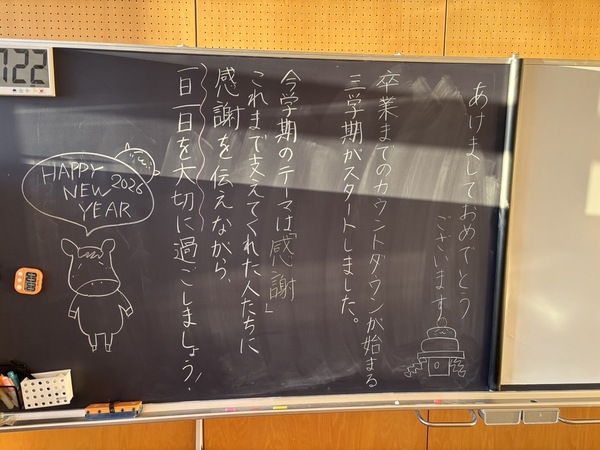 あけましておめでとう
ございます
卒業までのカウントダウンが始まる
三学期がスタートしました。
今学期のテーマは「感謝」
これまで支えてくれた人たちに
感謝を伝えながら、
一日一日を大切に過ごしましょう!
HAPPY
NEW 2026
YEAR
722